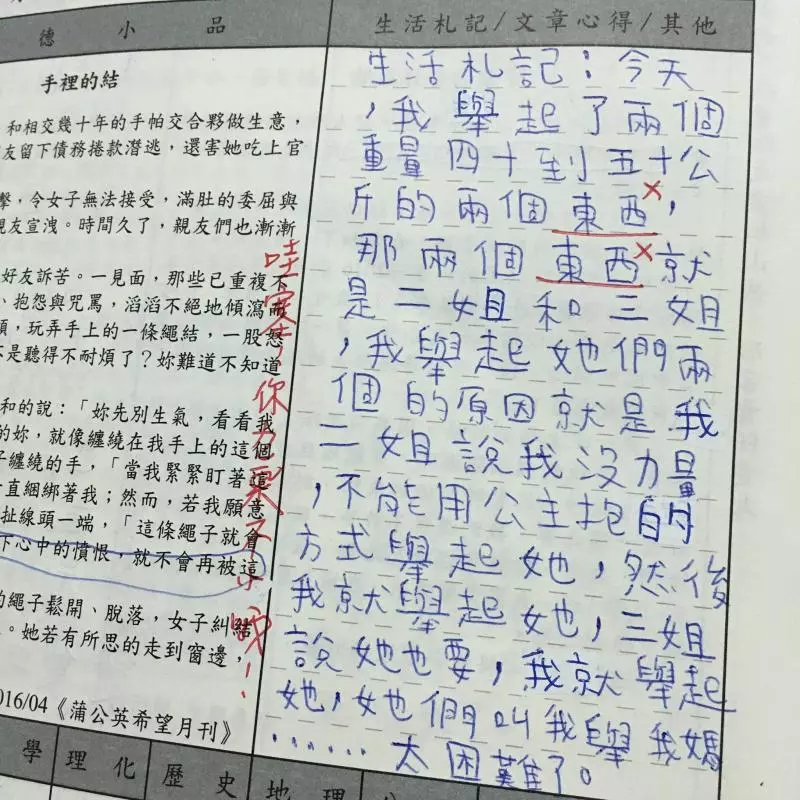 德小品
生活札記/文章心得/其他
手裡的結
和相交幾十年的手帕交合夥做生意，
友留下債務捲款潛逃，還害她吃上官
擊，令女子無法接受，滿肚的委屈與
親友宣洩。時間久了，親友們也漸漸
好友訴苦。一見面，那些已重複不
、抱怨與咒罵，滔滔不絕地傾瀉而
頭，玩弄手上的一條繩結，一股怒
不是聽得不耐煩了？妳難道不知道
和的說：「妳先別生氣，看看我
的妳，就像纏繞在我手上的這個
子纏繞的手，「當我緊緊盯著這
一直綑綁著我；然而，若我願意
扯線頭一端，「這條繩子就會
下心中的憤恨，就不會再被這
的繩子鬆開、脫落，女子糾結
。她若有所思的走到窗邊，
016/04《蒲公英希望月刊》
生活札記：今天
，我舉起了兩個
重量四十到五十公
斤的兩個東西，
那兩個東西就
是二姐和三姐
，我舉起她們兩
個的原因就是我
二姐說我沒力量
，不能用公主抱的
方式舉起她，然後
我就舉起她，三姐
說她也要，我就舉起
她，她們叫我舉我媽
……太困難了。
學
理化
歷史
地理